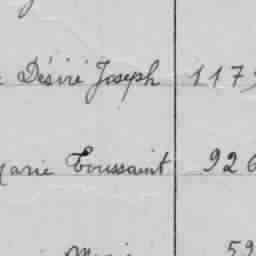 Désiré Joseph 117
Marie Toussaint 926
59